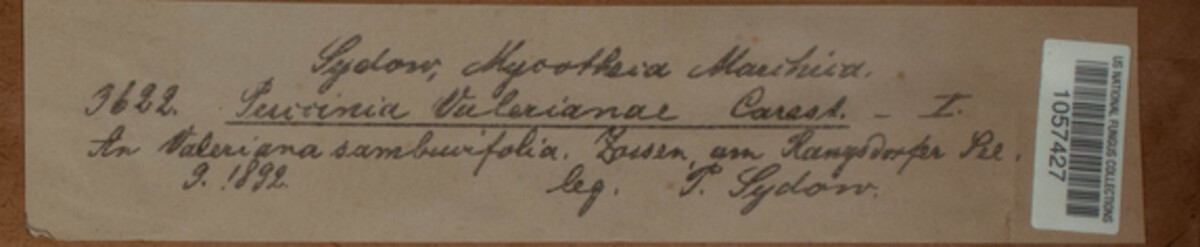 Sydow, Mycotheca Marchica.
3622. Puccinia Valerianae Carest. – I.
An Valeriana sambucifolia. Zossen, am Rangsdorfer See.
9. 1892. leg. P. Sydow.
US NATIONAL FUNGUS COLLECTIONS
1057427